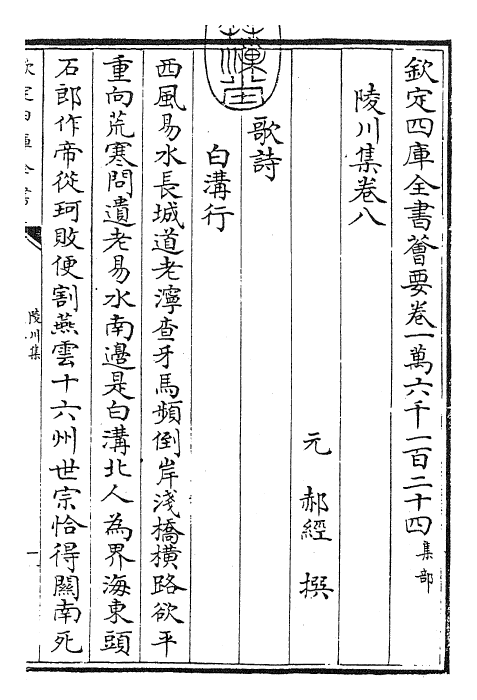 欽定四庫全書薈要卷一萬六千一百二十四集部
陵川集卷八
元 郝經 撰
歌詩
白溝行
西風易水長城道老濘查牙馬頻倒岸淺橋橫路欲平
重向荒寒問遺老易水南邊是白溝北人為界海東頭
石郎作帝從珂敗便割燕雲十六州世宗恰得關南死
陵川集
一